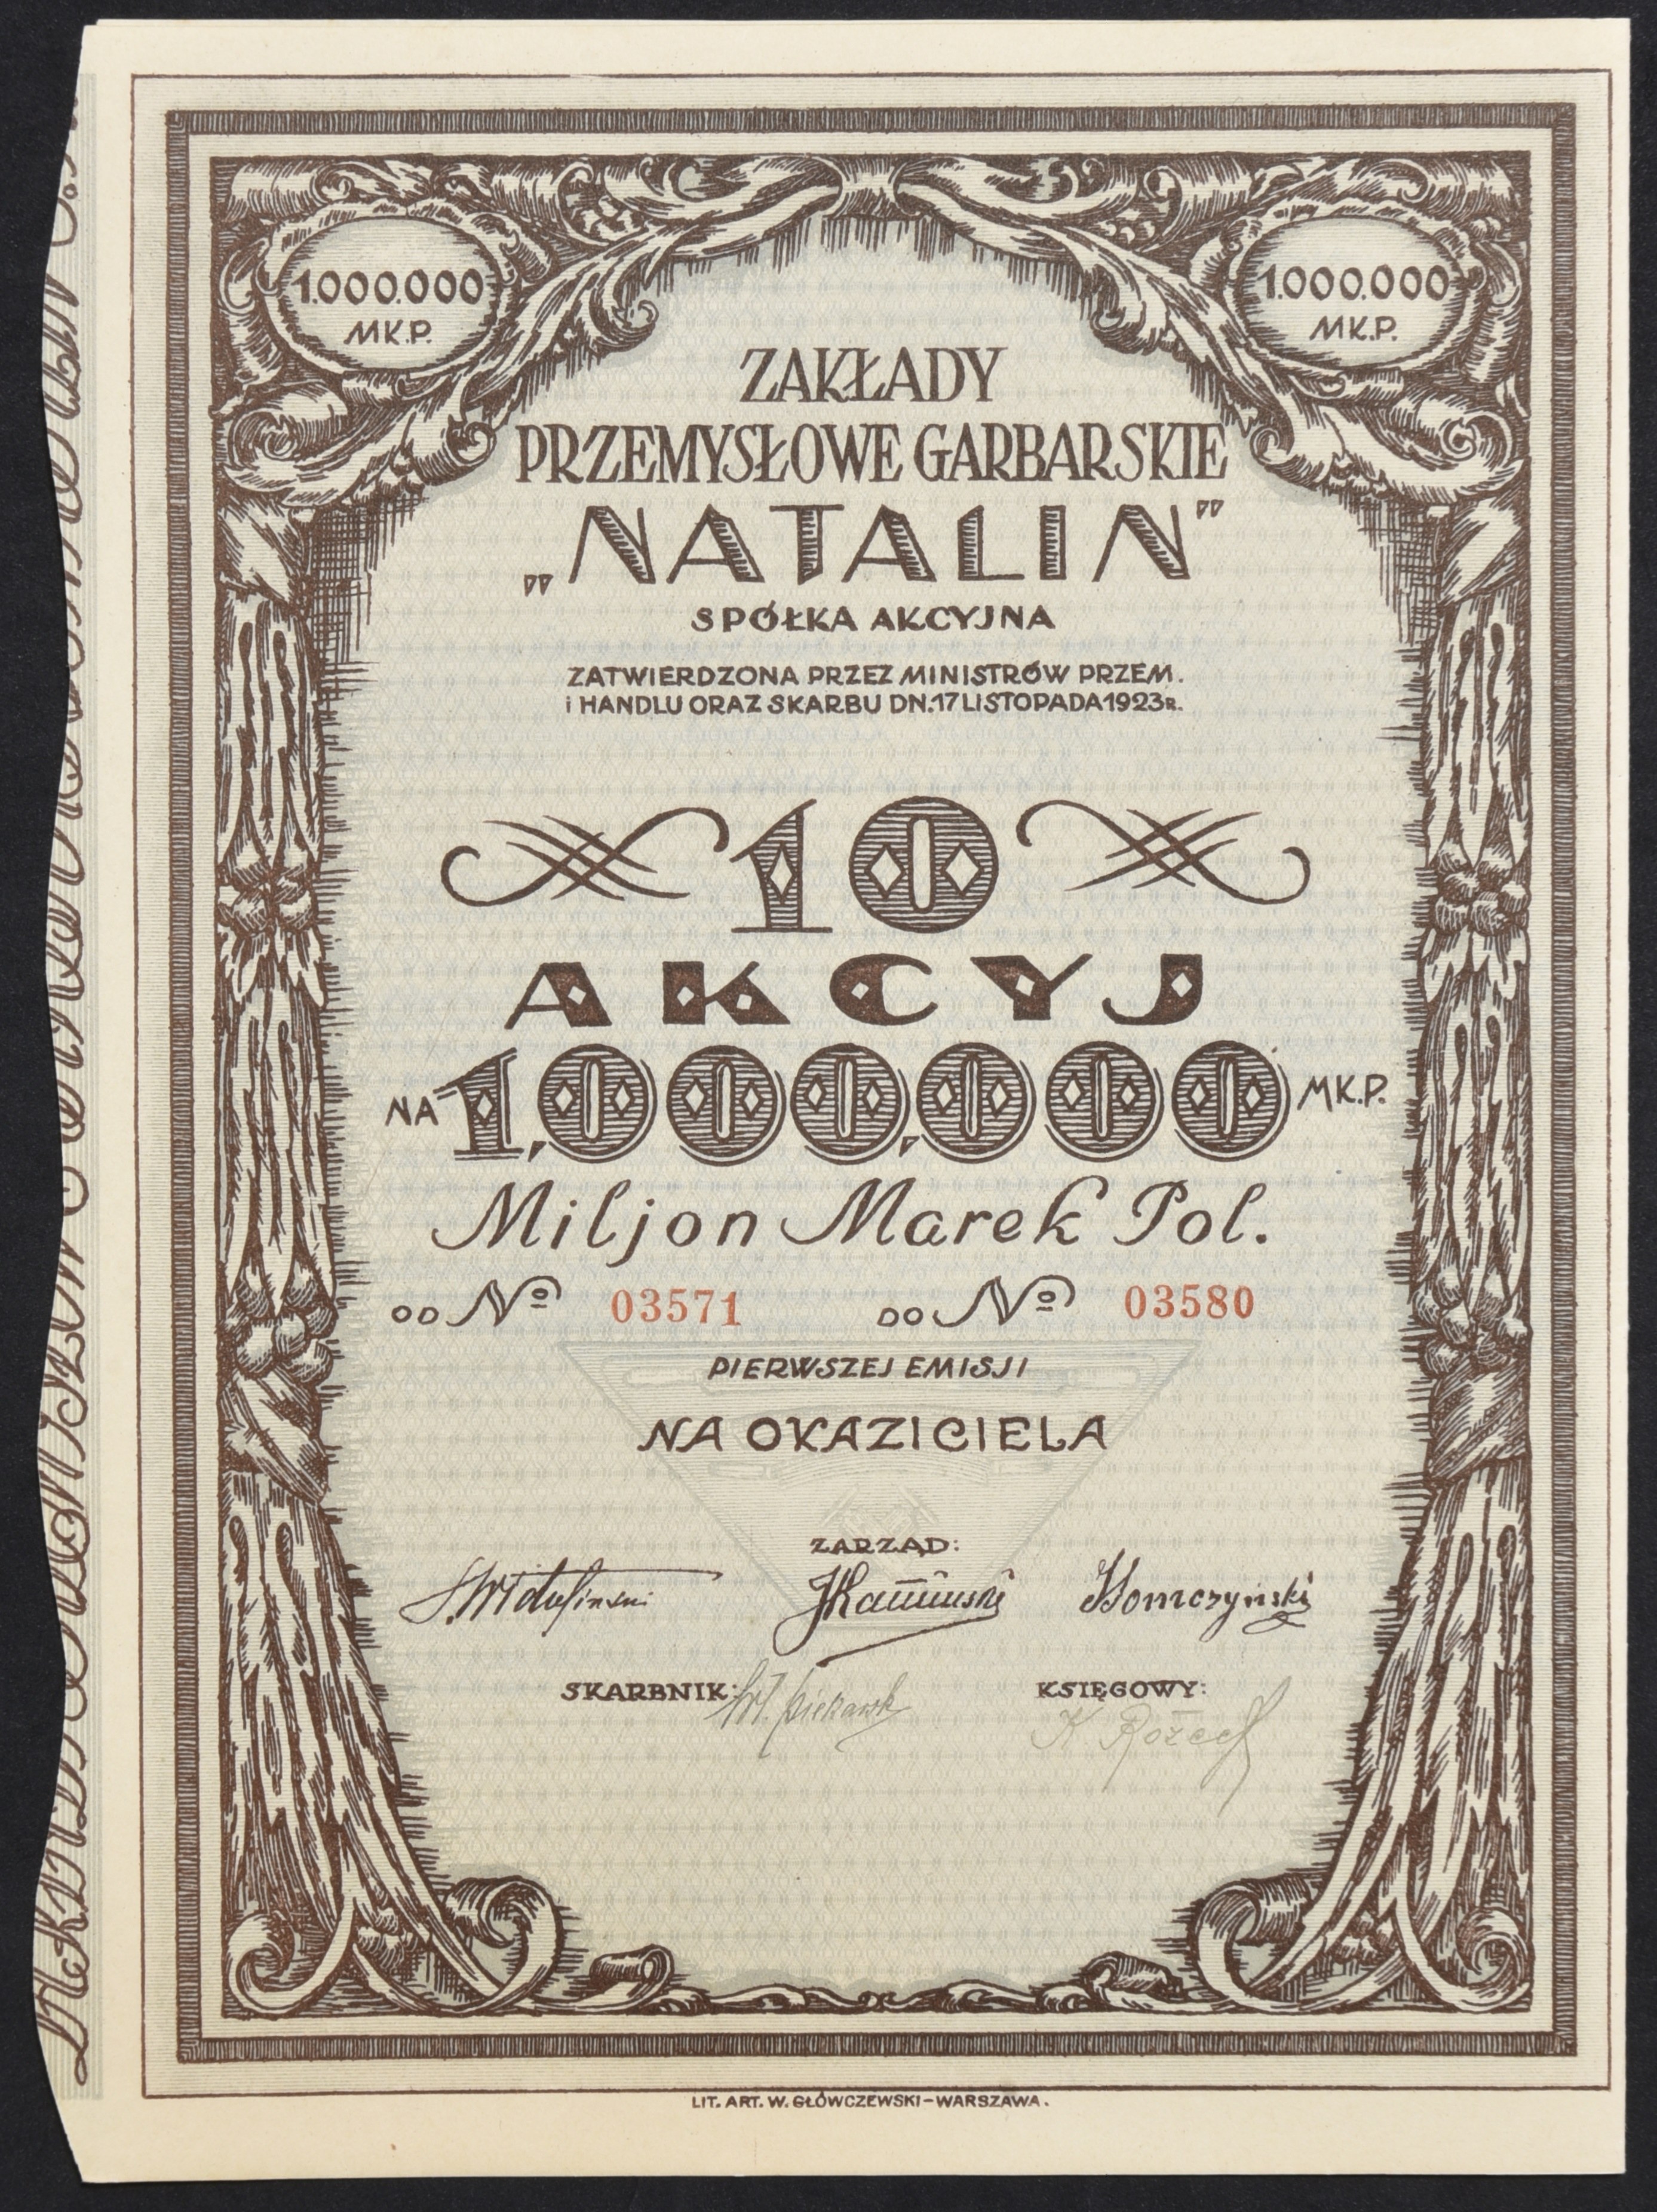 1.000.000 MK.P.
1.000.000 MK.P.
ZAKŁADY
PRZEMYSŁOWE GARBARSKIE
„NATALIN”
SPÓŁKA AKCYJNA
ZATWIERDZONA PRZEZ MINISTRÓW PRZEM.
i HANDLU ORAZ SKARBU DN. 17 LISTOPADA 1923 R.
10
AKCYJ
NA 1,000,000 MK.P.
Miljon Marek Pol.
OD No 03571 DO No 03580
PIERWSZEJ EMISJI
NA OKAZICIELA
ZARZĄD:
JKamiński
SKARBNIK: KSIĘGOWY:
LIT. ART. W. GŁÓWCZEWSKI-WARSZAWA.